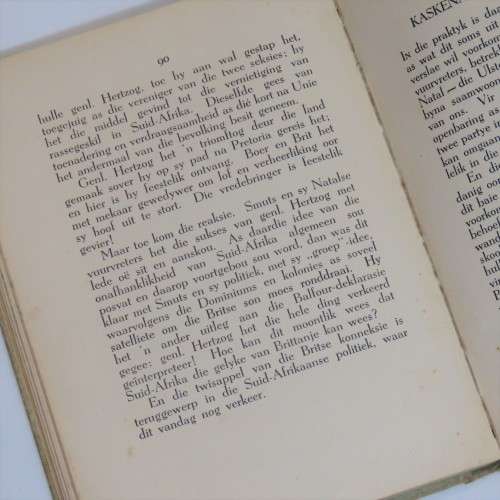 90
hulle genl. Hertzog, toe hy aan wal gestap het,
toegejuig as die vereniger van die twee seksies; hy
het die middel gevind tot die vernietiging van
rassegeskil in Suid-Afrika. Dieselfde gees van
toenadering en verdraagsaamheid as dié kort na Unie
het andermaal van die bevolking besit geneem.
Genl. Hertzog het 'n triomftog deur die land
gemaak sover hy op sy pad na Pretoria gereis het;
en hier is hy feestelik ontvang. Boer en Brit het
met mekaar gewedywer om lof en verheerliking oor
sy hoof uit te stort. Die vredebringer is feestelik
gevier!
Maar toe kom die reaksie. Smuts en sy Natalse
vuurvreters het die sukses van genl. Hertzog met
lede oë sit en aanskou. As daardie idee van die
onafhanklikheid van Suid-Afrika algemeen sou
posvat en daarop voortgebou sou word, dan was dit
klaar met Smuts en sy politiek, met sy „groep"-idee,
waarvolgens die Dominiums en kolonies as soveel
satelliete om die Britse son moes ronddraai. Hy
het 'n ander uitleg aan die Balfour-deklarasie
gegee: genl. Hertzog het die hele ding verkeerd
geïnterpreteer! Hoe kan dit moontlik wees dat
Suid-Afrika die gelyke van Brittanje kan wees?
En die twisappel van die Britse konneksie is
teruggewerp in die Suid-Afrikaanse politiek, waar
dit vandag nog verkeer.
In die praktyk is da
as wat dit soms uit
verslae wil voorkom
vuurvreters, betrek
Natal — die Ulste
byna saamwoon
van ons. Vir
openbaring as
twee partye t
kan omgaan
lik in die
En die
danig o
dit baie